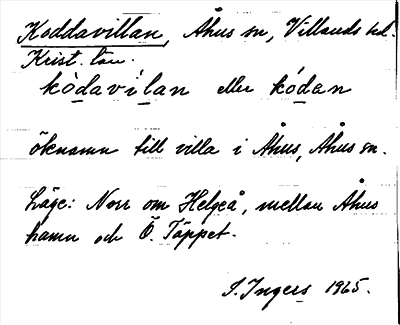 Koddavillan, Åhus sn, Villands hd.
Krist. län.
kòdavílan eller kódan
öknamn till villa i Åhus, Åhus sn.
Läge: Norr om Helgeå, mellan Åhus
hamn och Ö. Täppet.
S. Ingers 1965.